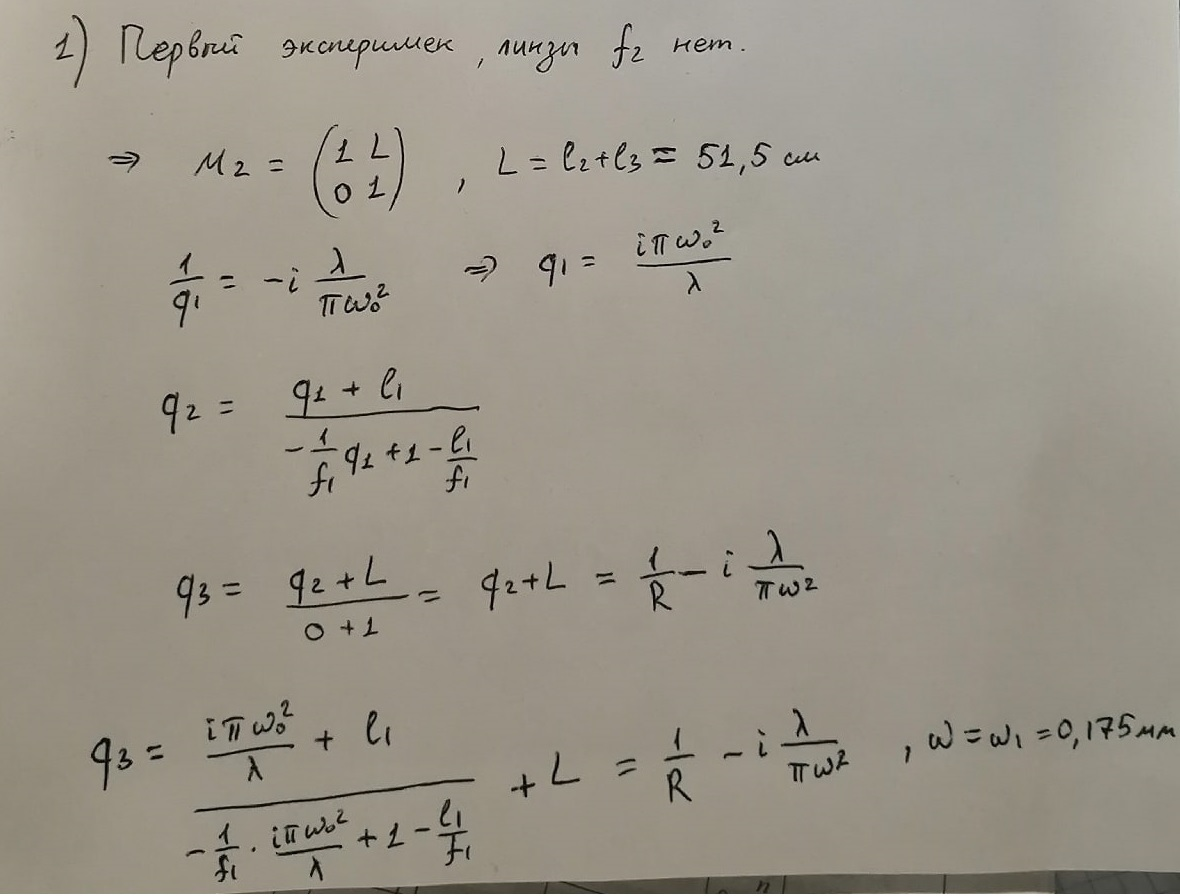 1) Первый эксперимек, линзы f₂ нет.
⇒ M₂ = (1 L; 0 1), L = l₂+l₃ = 51,5 см
1/q₁ = -i λ/(πω₀²) ⇒ q₁ = iπω₀²/λ
q₂ = (q₁ + l₁)/(-1/f₁ q₁ + 1 - l₁/f₁)
q₃ = (q₂ + L)/(0 + 1) = q₂ + L = 1/R - i λ/(πω²)
q₃ = (iπω₀²/λ + l₁)/(-1/f₁ · iπω₀²/λ + 1 - l₁/f₁) + L = 1/R - i λ/(πω²), ω = ω₁ = 0,175 мм